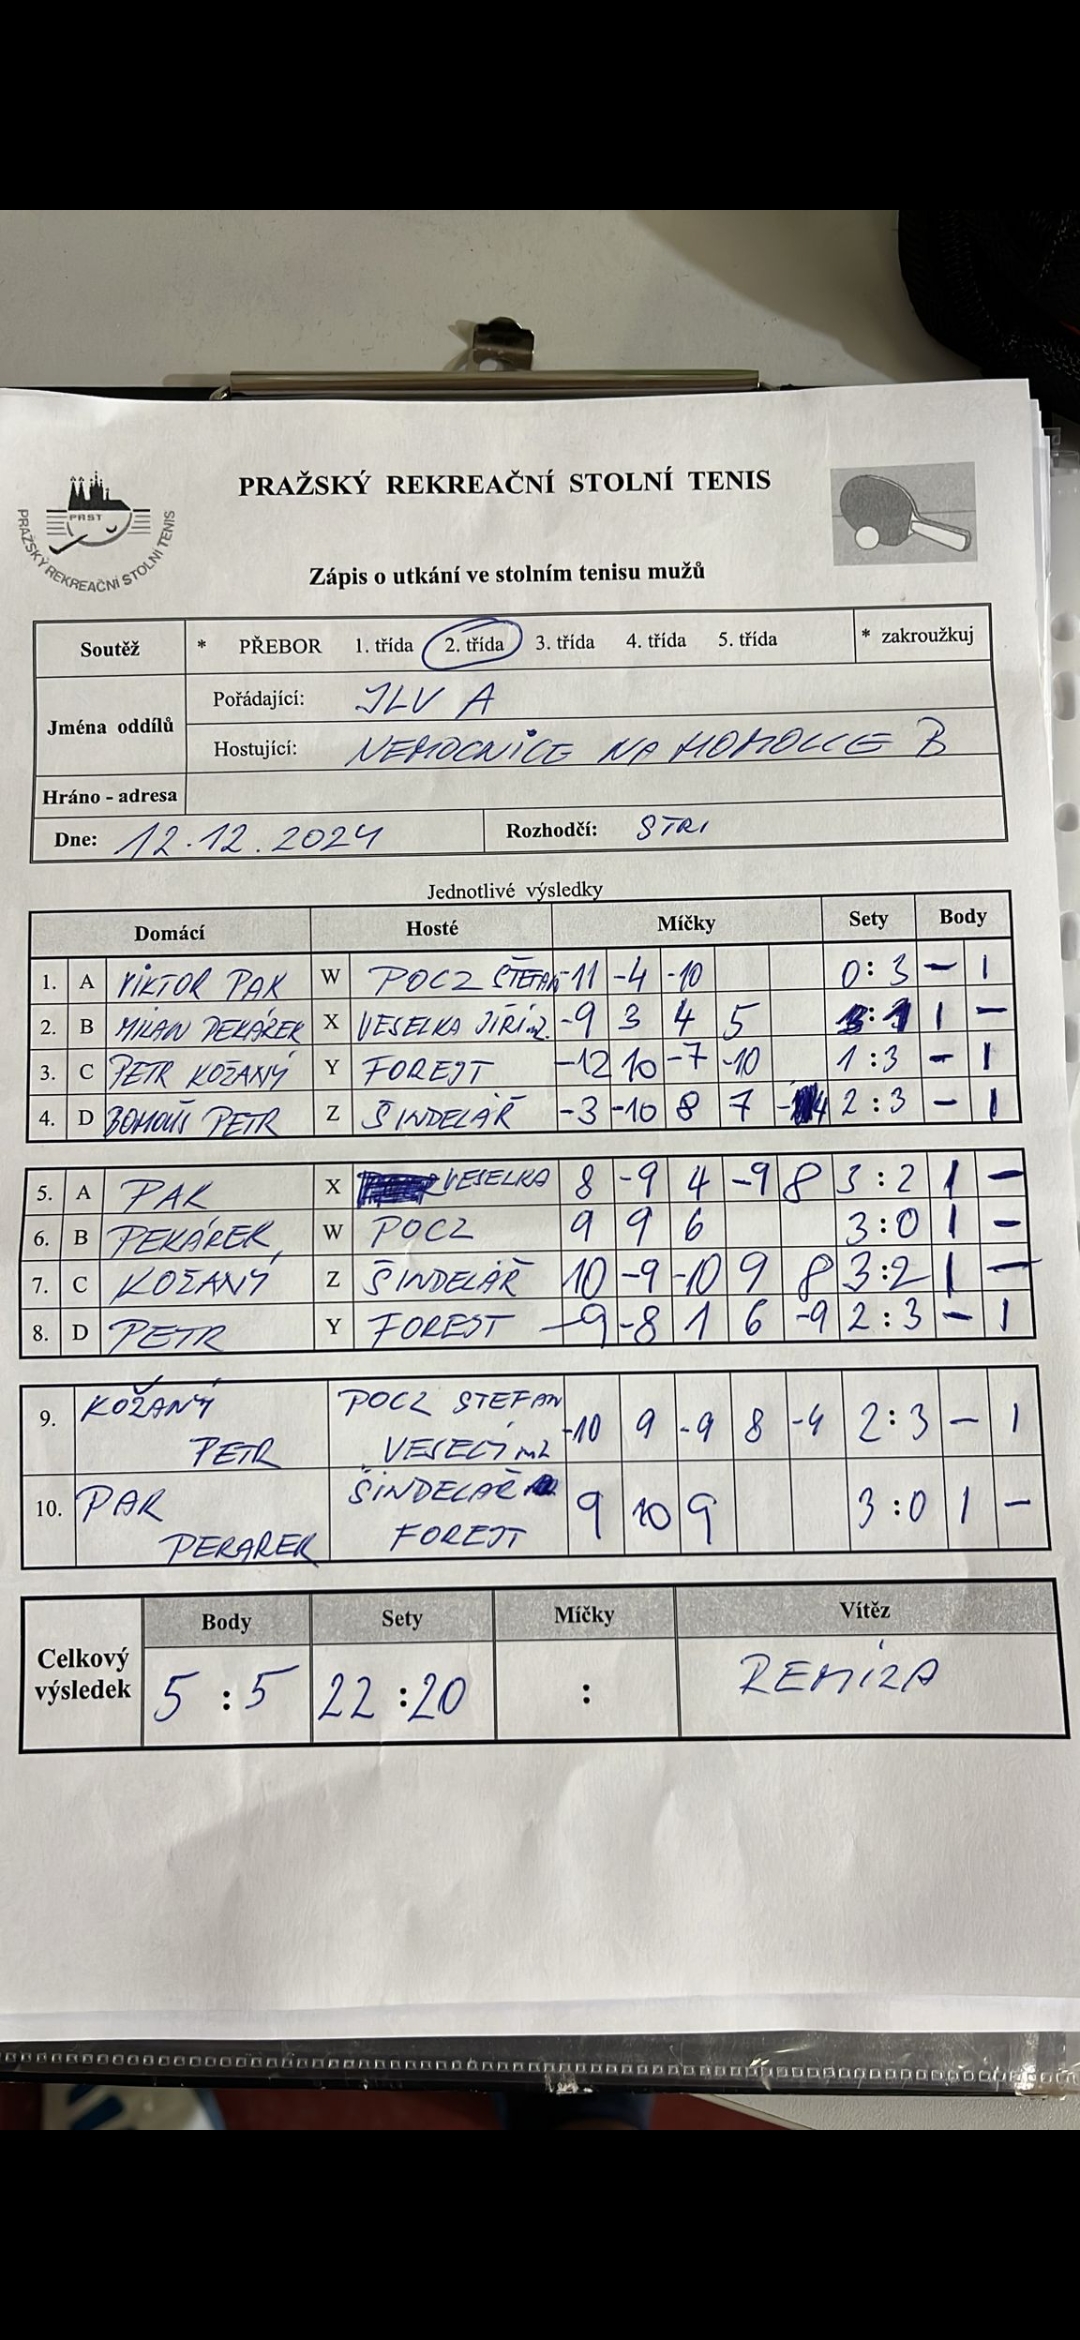 PRAŽSKÝ REKREAČNÍ STOLNÍ TENIS
PRST
PRAŽSKÝ REKREAČNÍ STOLNÍ TENIS
Zápis o utkání ve stolním tenisu mužů
Soutěž * PŘEBOR 1. třída 2. třída 3. třída 4. třída 5. třída * zakroužkuj
Jména oddílů
Pořádající: JLV A
Hostující: NEMOCNICE NA HOMOLCE B
Hráno - adresa
Dne: 12.12.2024 Rozhodčí: STRI
Jednotlivé výsledky
Domácí Hosté Míčky Sety Body
1. A VIKTOR PAK W POCZ ŠTEFAN -11 -4 -10 0:3 – 1
2. B MILAN PEKÁREK X VESELKA JIŘÍ ml. -9 3 4 5 3:1 1 –
3. C PETR KOŽANÝ Y FOREJT -12 10 -7 -10 1:3 – 1
4. D BOHOUŠ PETR Z ŠINDELÁŘ -3 -10 8 7 -4 2:3 – 1
5. A PAK X VESELKA 8 -9 4 -9 8 3:2 1 –
6. B PEKÁREK W POCZ 9 9 6 3:0 1 –
7. C KOŽANÝ Z ŠINDELÁŘ 10 -9 -10 9 8 3:2 1 –
8. D PETR Y FOREJT -9 -8 1 6 -9 2:3 – 1
9. KOŽANÝ POCZ STEFAN -10 9 -9 8 -4 2:3 – 1
PETR VESELÝ ml
10. PAK ŠINDELÁŘ 9 10 9 3:0 1 –
PEKAREK FOREJT
Celkový výsledek
Body Sety Míčky Vítěz
5 : 5 22 : 20 : REMÍZA